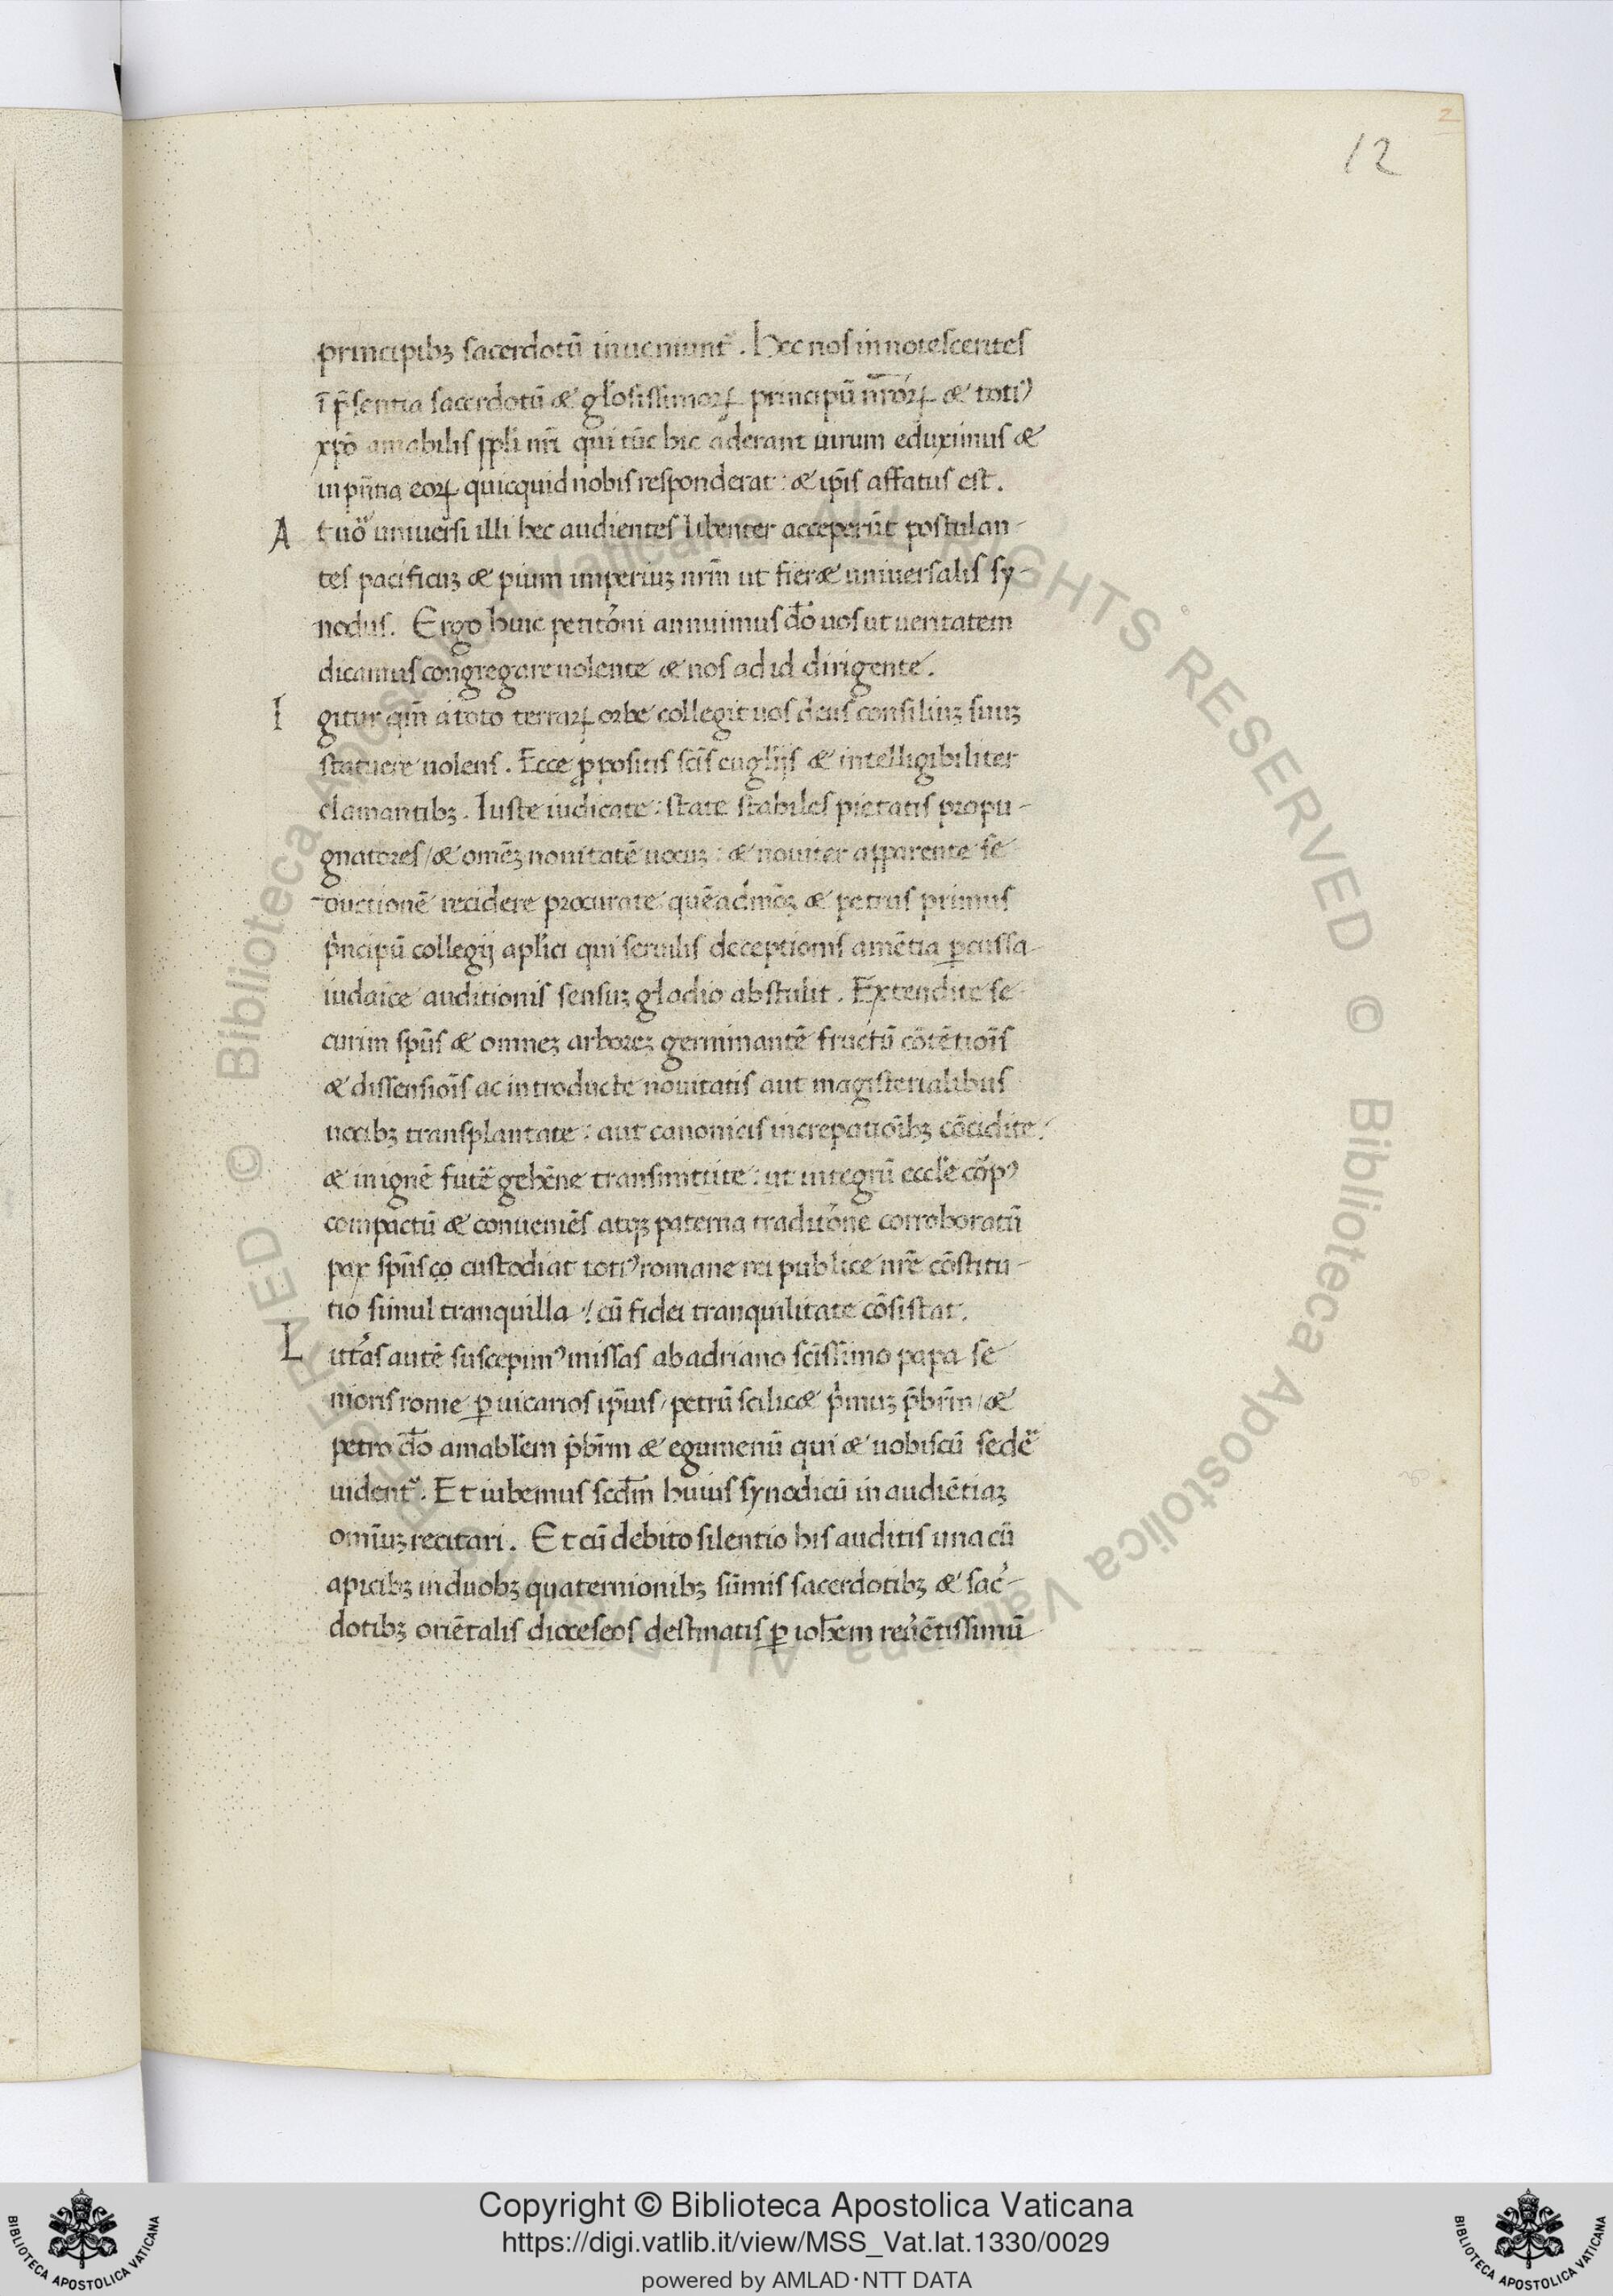 2
12
principibꝫ sacerdotū inueniunt᷑. Hec nos innotescentes
ī p̄sentia sacerdotū & gl̄osissimoꝝ principū nr̄oꝝ & toti᾽
xp̄o amabilis pp̄li nr̄i qui tūc hic aderant uirum eduximus &
in pn̄tia eoꝝ quicquid nobis responderat : & ip̄is affatus est.
A t uo᷑ uniuersi illi hec audientes libenter acceperūt postulan-
tes pacificuꝫ & pium imperiuꝫ nr̄m ut fier& uniuersalis sy-
nodus. Ergo huic petitōni annuimus dō uos ut ueritatem
dicamus congregare uolente & nos ad id dirigente.
I gitur qm̄ a toto terraꝝ orbe collegit uos deus consiliuꝫ suuꝫ
statuere uolens. Ecce ꝓpositis sc̄is eugl̄ijs & intelligibiliter
clamantibꝫ. Iuste iudicate : state stabiles pietatis propu-
gnatores / & omēꝫ nouitatē uocuꝫ : & nouiter apparente se-
ductionē recidere procurate quēadmōꝫ & petrus primus
p̄ncipū collegij apl̄ici qui seruilis deceptionis amētia ꝑcussa
iudaice auditionis sensuꝫ gladio abstulit. Extendite se-
curim sp̄us & omneꝫ arboreꝫ germinantē fructū cōtētiōis
& dissensiōis ac introducte nouitatis aut magisterialibus
uocibꝫ transplantate : aut canonicis increpatiōibꝫ cōcidite :
& in ignē fute᷑ gehēne transmittite : ut integrū eccl̄e cōp᾽
compactū & conueniēs atqꝫ paterna traditōne corroboratū
pax sp̄us co custodiat toti᾽ romane rei publice nr̄e cōstitu-
tio simul tranquilla / cū fidei tranquilitate cōsistat.
L itt̄as autē suscepim᾽ missas ab adriano sc̄issimo papa se-
nioris rome ꝑ uicarios ip̄ius / petrū scilic& p̄muꝫ p̄br̄m / &
petro dō amabl̄em p̄br̄m & egumenū qui & uobiscū sede᷑
uident᷑. Et iubemus scd̄m huius synodicū in audiētiaꝫ
omīuꝫ recitari. Et cū debito silentio his auditis una cū
apicibꝫ in duobꝫ quaternionibꝫ sūmis sacerdotibꝫ & sac̄-
dotibꝫ oriētalis dioceseos destinatis ꝑ ioh̄em reu̓ētissimū
© Biblioteca Apostolica Vaticana ALL RIGHTS RESERVED © Biblioteca Apostolica Vaticana ALL RIGHTS RESERVED
Copyright © Biblioteca Apostolica Vaticana
https://digi.vatlib.it/view/MSS_Vat.lat.1330/0029
powered by AMLAD·NTT DATA
BIBLIOTECA APOSTOLICA VATICANA
BIBLIOTECA APOSTOLICA VATICANA